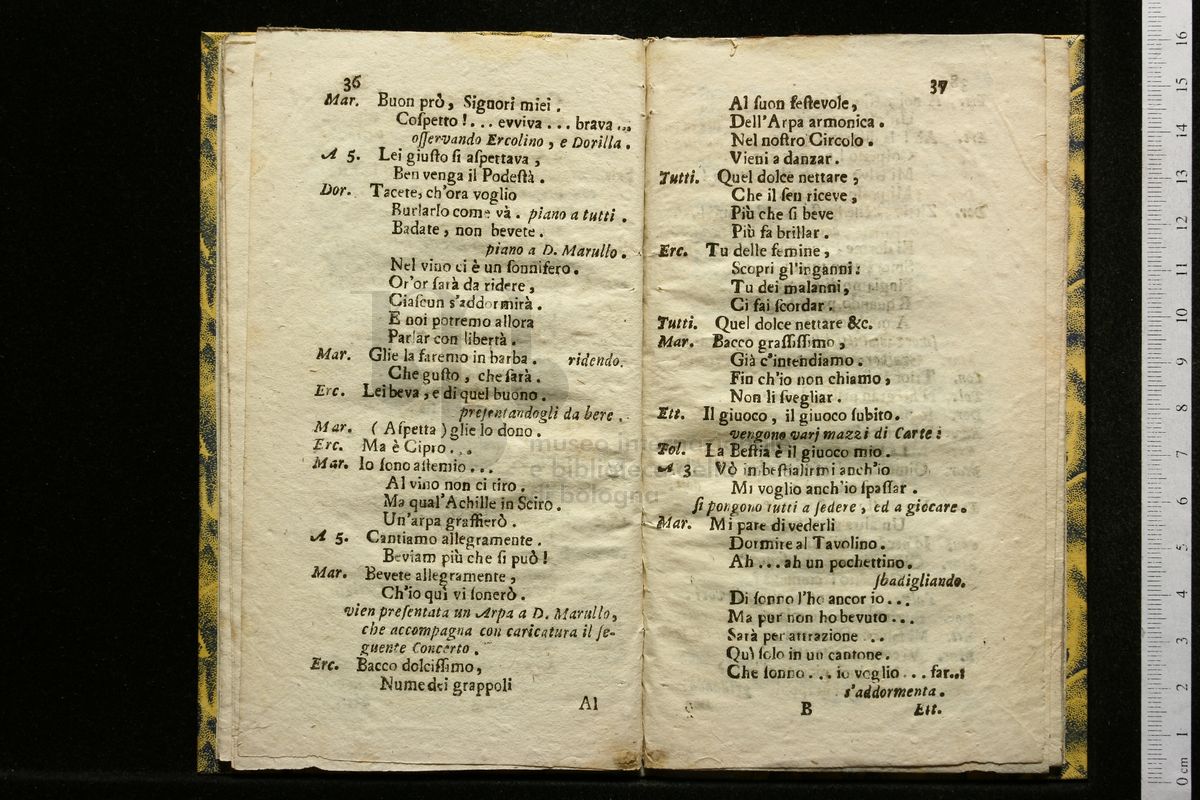 36
Mar. Buon prò, Signori miei.
Coſpetto!... evviva... brava...
oſſervando Ercolino, e Dorilla.
A 5. Lei giuſto ſi aſpettava,
Ben venga il Podeſtà.
Dor. Tacete, ch'ora voglio
Burlarlo come và. piano a tutti.
Badate, non bevete.
piano a D. Marullo.
Nel vino ci è un ſonnifero.
Or'or ſarà da ridere,
Ciaſcun s'addormirà.
E noi potremo allora
Parlar con libertà.
Mar. Glie la faremo in barba. ridendo.
Che guſto, che ſarà.
Erc. Lei beva, e di quel buono.
preſentandogli da bere.
Mar. (Aſpetta) glie lo dono.
Erc. Ma è Cipro...
Mar. Io ſono aſtemio...
Al vino non ci tiro.
Ma qual'Achille in Sciro.
Un'arpa graffierò.
A 5. Cantiamo allegramente.
Beviam più che ſi può!
Mar. Bevete allegramente,
Ch'io quì vi ſonerò.
vien preſentata un Arpa a D. Marullo,
che accompagna con caricatura il ſe-
guente Concerto.
Erc. Bacco dolciſſimo,
Nume dei grappoli
Al
37
Al ſuon feſtevole,
Dell'Arpa armonica.
Nel noſtro Circolo.
Vieni a danzar.
Tutti. Quel dolce nettare,
Che il ſen riceve,
Più che ſi beve
Più fa brillar.
Erc. Tu delle femine,
Scopri gl'inganni:
Tu dei malanni,
Ci fai ſcordar.
Tutti. Quel dolce nettare &c.
Mar. Bacco graſſiſſimo,
Già c'intendiamo.
Fin ch'io non chiamo,
Non li ſvegliar.
Ett. Il giuoco, il giuoco ſubito.
vengono varj mazzi di Carte:
Pol. La Beſtia è il giuoco mio.
A 3 Vò in beſtialirmi anch'io
Mi voglio anch'io ſpaſſar.
ſi pongono tutti a ſedere, ed a giocare.
Mar. Mi pare di vederli
Dormire al Tavolino.
Ah... ah un pochettino.
ſbadigliando.
Di ſonno l'ho ancor io...
Ma pur non ho bevuto...
Sarà per attrazione ..
Quì ſolo in un cantone.
Che ſonno... io voglio... far...
s'addormenta.
B
Ett.